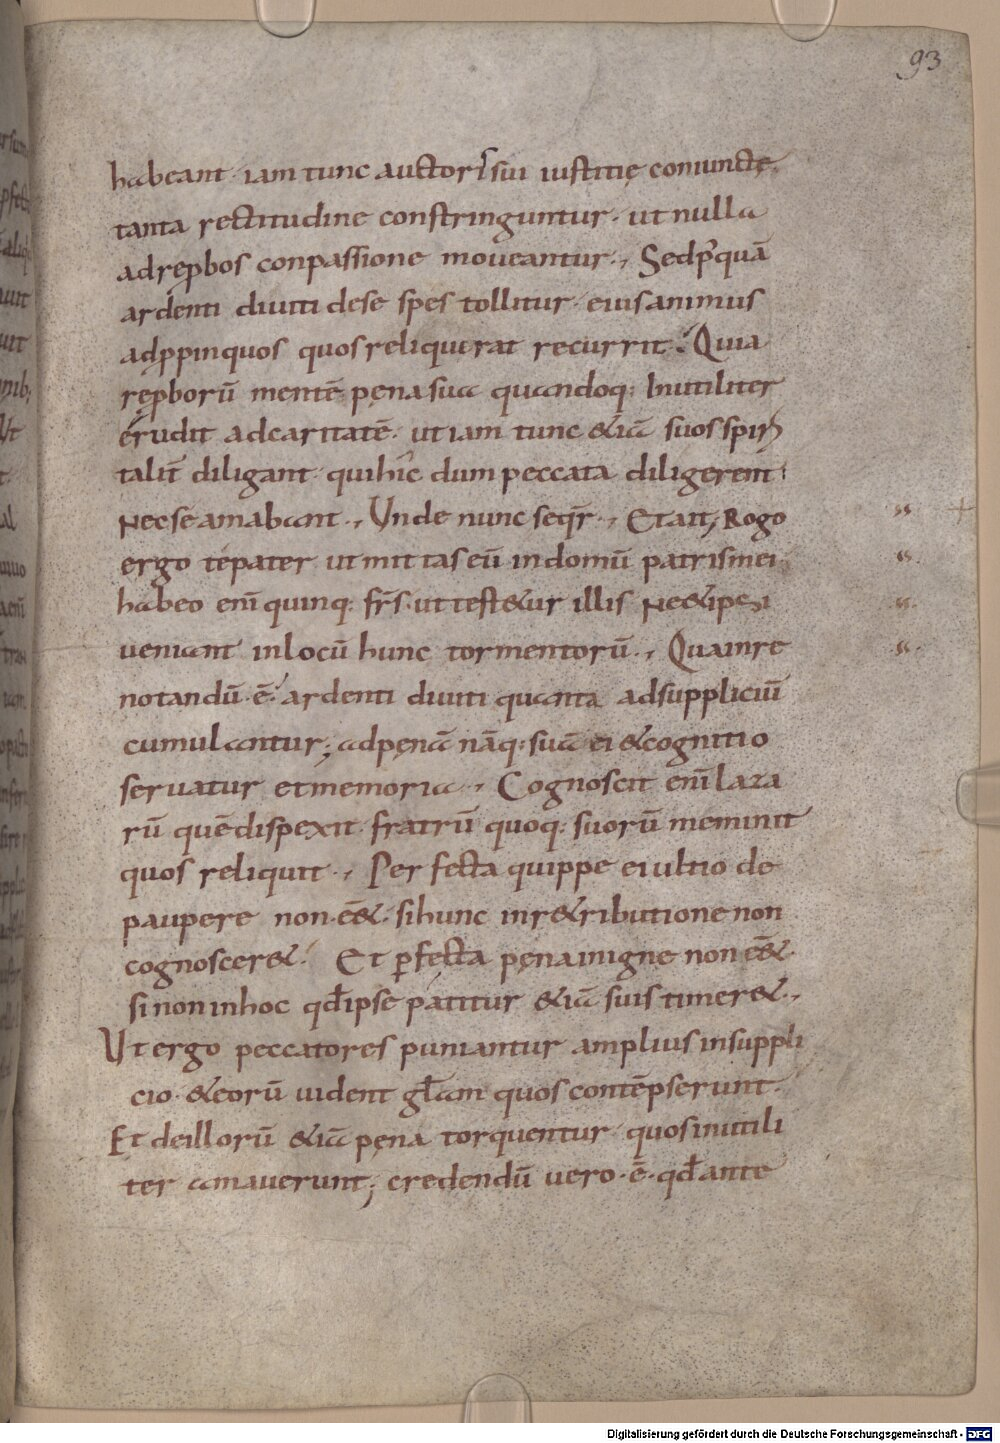 93
habeant iam tunc auctoris sui iustitię coniunctę.
tanta rectitudine constringuntur. ut nulla
ad reꝓbos conpassione moueantur., Sed pꝰquā
ardenti diuiti de se spes tollitur eius animus
ad ꝓpinquos quos reliquerat recurrit. Quia
reꝓborū mentē pęna sua quandoq; inutiliter
erudit ad caritatē. ut iam tunc &iā suos spiri
talit̄ diligant qui hic dum peccata diligerent
Nec se amabant., Unde nunc seqr̄., Et ait, Rogo
ergo te pater ut mittas eū in domū patris mei
habeo enī quinq; fr̄s. ut test&ur illis Ne & ipsi
ueniant in locū hunc tormentorū., Qua in re
notandū.ē. ardenti diuiti quanta ad suppliciū
cumulantur; ad pęnā nāq; suā ei & cognitio
seruatur et memoria., Cognoscit enī laza
rū quē dispexit fratrū quoq; suorū meminit
quos reliquit., Perfecta quippe ei ultio de
paupere non.ēē&. si hunc in r&ributione non
cognoscer&. Et ꝑfecta pęna in igne non ēē&.
si non in hoc qđ ipse patitur &iā suis timer&.,
Ut ergo peccatores puniantur amplius in suppli
cio. & eorū uident gl̄am quos contēpserunt.
Et de illorū &iā pęna torquentur quos inutili
ter amauerunt; credendū uero.ē. qđ ante
Digitalisierung gefördert durch die Deutsche Forschungsgemeinschaft - DFG